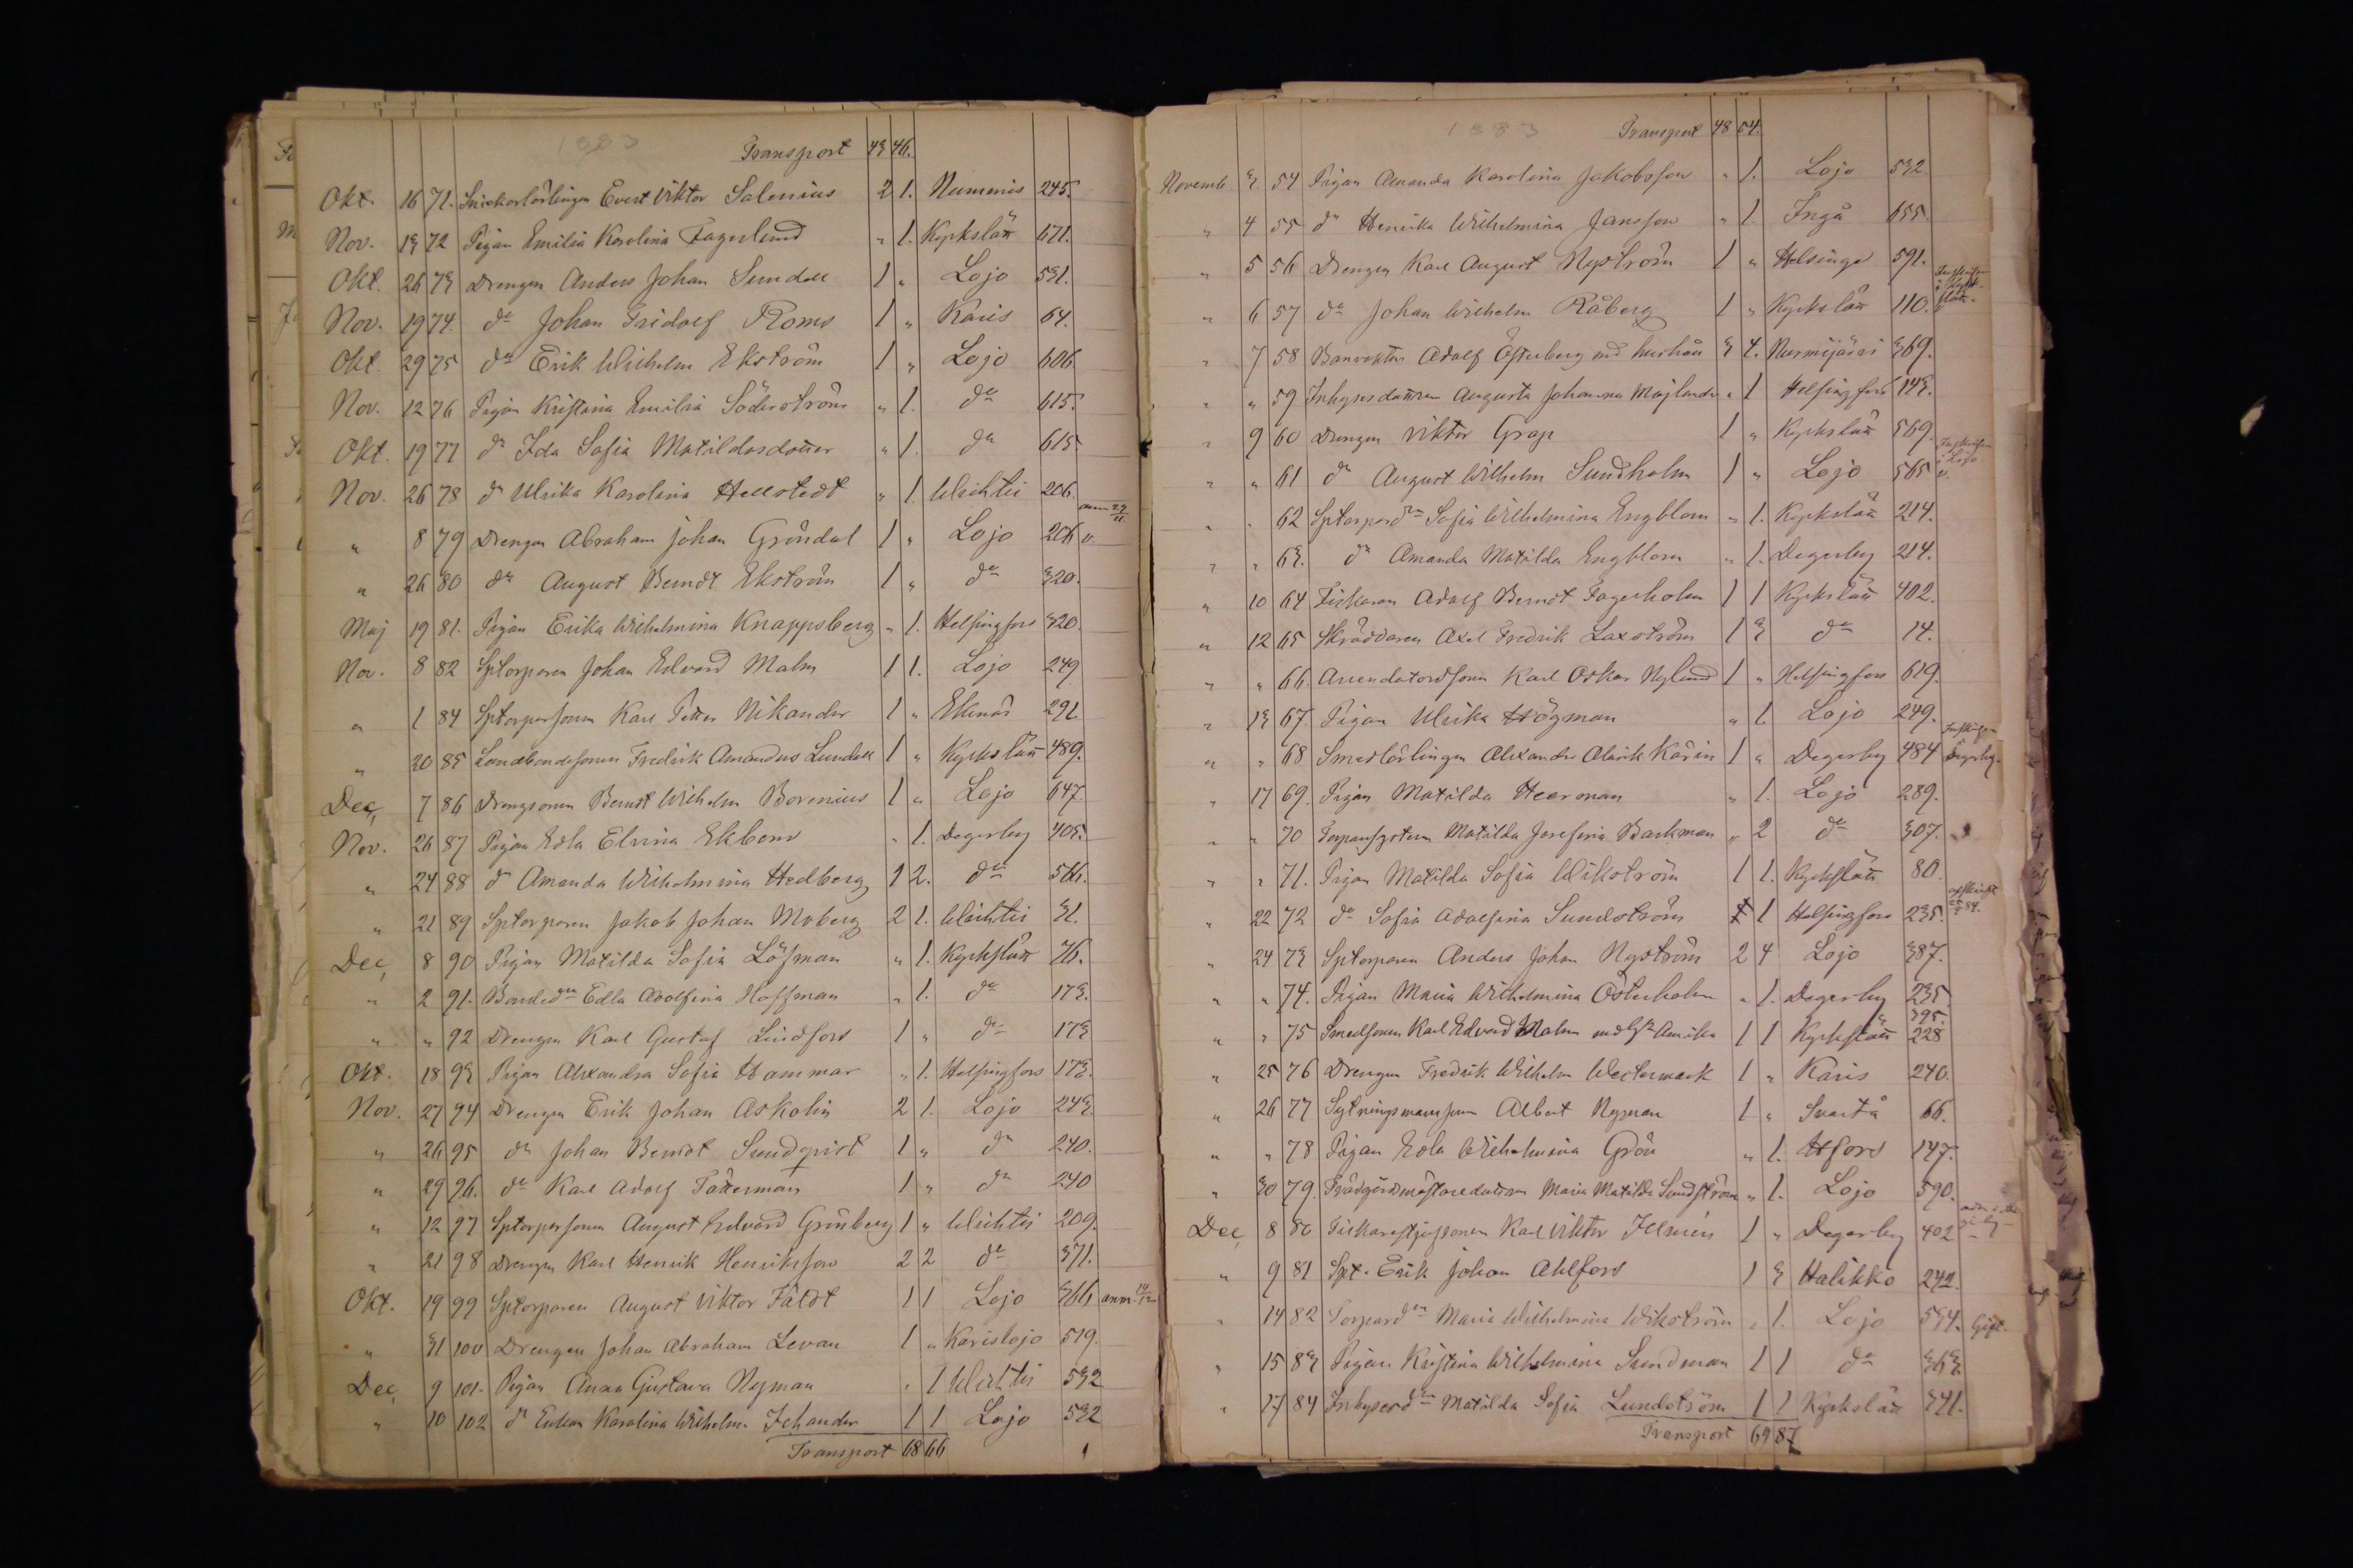 1883
Transport 43 46.
Okt. 16 71. Snickarlärlingen Evert Viktor Salenius 2 1. Nummis 245.
Nov. 13 72 Pigan Emilia Karolina Fagerlund " 1. Kyrkslätt 671.
Okt. 26 73 Drengen Anders Johan Sundell 1 " Lojo 531.
Nov. 19 74. do Johan Fridolf Roms 1 " Karis 64.
Okt. 29 75 do Erik Wilhelm Ekström 1 " Lojo 606.
Nov. 12 76 Pigan Kristina Emilia Söderström " 1. do 615.
Okt. 19 77 do Ida Sofia Matildasdotter " 1. do 615.
Nov. 26 78 do Ulrika Karolina Hellstedt " 1. Wichtis 206.
" 8 79 Drengen Abraham Johan Gröndal 1 " Lojo 206 v. anm 27/11
" 26 80 do August Berndt Ekström 1 " do 320.
Maj 19 81. Pigan Erika Wilhelmina Knappsberg " 1. Helsingfors 320.
Nov. 8 82 Sptorparen Johan Edvard Malm 1 1. Lojo 249
" 1 84 Sptorparsonen Karl Petter Nikander 1 " Ekenäs 291.
" 20 85 Landbondesonen Fredrik Amandus Lundell 1 " Kyrkslätt 489.
Dec, 7 86 Drengsonen Berndt Wilhelm Borenius 1 " Lojo 647.
Nov. 26 87 Pigan Edla Elvira Ekbom " 1. Degerby 403.
" 24 88 do Amanda Wilhelmina Hedberg 1 2. do 566.
" 21 89 Sptorparen Jakob Johan Moberg 2 1. Wichtis 31.
Dec, 8 90 Pigan Matilda Sofia Löfman " 1. Kyrkslätt 76.
" 2 91. Bondedn Edla Adolfina Hoffman " 1. do 173.
" " 92 Drengen Karl Gustaf Lindfors 1 " do 173
Okt. 18 93 Pigan Alexandra Sofia Hammar " 1. Helsingfors 173.
Nov. 27 94 Drengen Erik Johan Askolin 2 1. Lojo 243.
" 26 95 do Johan Berndt Sundqvist 1 " do 240.
" 29 96. do Karl Adolf Täkerman 1 " do 240
" 12 97 Sptorparsonen August Edvard Grönberg 1 " Wichtis 209.
" 21 98 Drengen Karl Henrik Henriksson 2 2 do 371.
Okt. 19 99 Sptorparen August Viktor Fäldt 1 1 Lojo 366 anm. 14/12
" 31 100 Drengen Johan Abraham Levan 1 " Karislojo 519.
Dec, 9 101. Pigan Anna Gustava Nyman " 1 Wichtis 532
" 10 102 do Erika Karolina Wilhelm. Jehander 1 1 Lojo 532
Transport 68 66
1883
Transport 48 54.
Novemb 3 54 Pigan Amanda Karolina Jakobsson " 1. Lojo 532
" 4 55 do Henrika Wilhelmina Jansson " 1. Ingå 655.
" 5 56 Drengen Karl August Nyström 1 " Helsinge 591.
" 6 57 do Johan Wilhelm Råberg 1 " Kyrkslätt 110.
" 7 58 Banvakten Adolf Österberg md hushåll 3 4. Nurmijärvi 369.
" " 59 Inhysesdottren Augusta Johanna Majlander " 1 Helsingfors 143.
" 9 60 Drengen Viktor Grap 1 " Kyrkslätt 569.
" " 61 do August Wilhelm Sundholm 1 " Lojo 565 v. i Lojo.
" " 62 Sptorpardn Sofia Wilhelmina Engblom " 1. Kyrkslätt 214.
" " 63. do Amanda Matilda Engblom " 1. Degerby 214.
" 10 64 Fiskaren Adolf Berndt Fagerholm 1 1 Kyrkslätt 402.
" 12 65 Skräddaren Axel Fredrik Laxström 1 3 do 14.
" " 66. Arrendatorssonen Karl Oskar Nylund 1 " Helsingfors 619.
" 13 67. Pigan Ulrika Högman " 1. Lojo 249.
" " 68 Smedslärlingen Alexander Alarik Karin 1 " Degerby 484 Degerby.
" 17 69. Pigan Matilda Heerman " 1. Lojo 289.
" " 70 Matilda Josefina Backman " 2 do 307.
" " 71. Pigan Matilda Sofia Wikström 1 1. Kyrkslätt 80.
" 22 72 do Sofia Adolfina Sundström 1 Helsingfors 235.
" 24 73 Sptorparen Anders Johan Nyström 2 4 Lojo 387.
" " 74. Pigan Maria Wilhelmina Österholm " 1. Degerby 235
395.
" " 75 Smedsonen Karl Edvard Malm md Annika 1 1 Kyrkslätt 228
" 25 76 Drengen Fredrik Wilhelm Westermark 1 " Karis 240.
" 26 77 Sytningsmanssonen Albert Nyman 1 " Svartå 66.
" " 78 Pigan Edla Wilhelmina Grön " 1. Hfors 147.
" 30 79. Trädgårdsmästaredottren Maria Matilda Sundström " 1. Lojo 590.
Dec, 8 80 Karl Viktor Illmén 1 " Degerby 402
" 9 81 Spt. Erik Johan Ahlfors 1 3 Halikko 242.
" 14 82 Torpardn Maria Wilhelmina Wikström " 1. Lojo 534. Gift.
" 15 83 Pigan Kristina Wilhelmina Sundman 1 1 do 363.
" 17 84 Inhysesdn Matilda Sofia Lundström 1 1 Kyrkslätt 341.
Transport 69 87